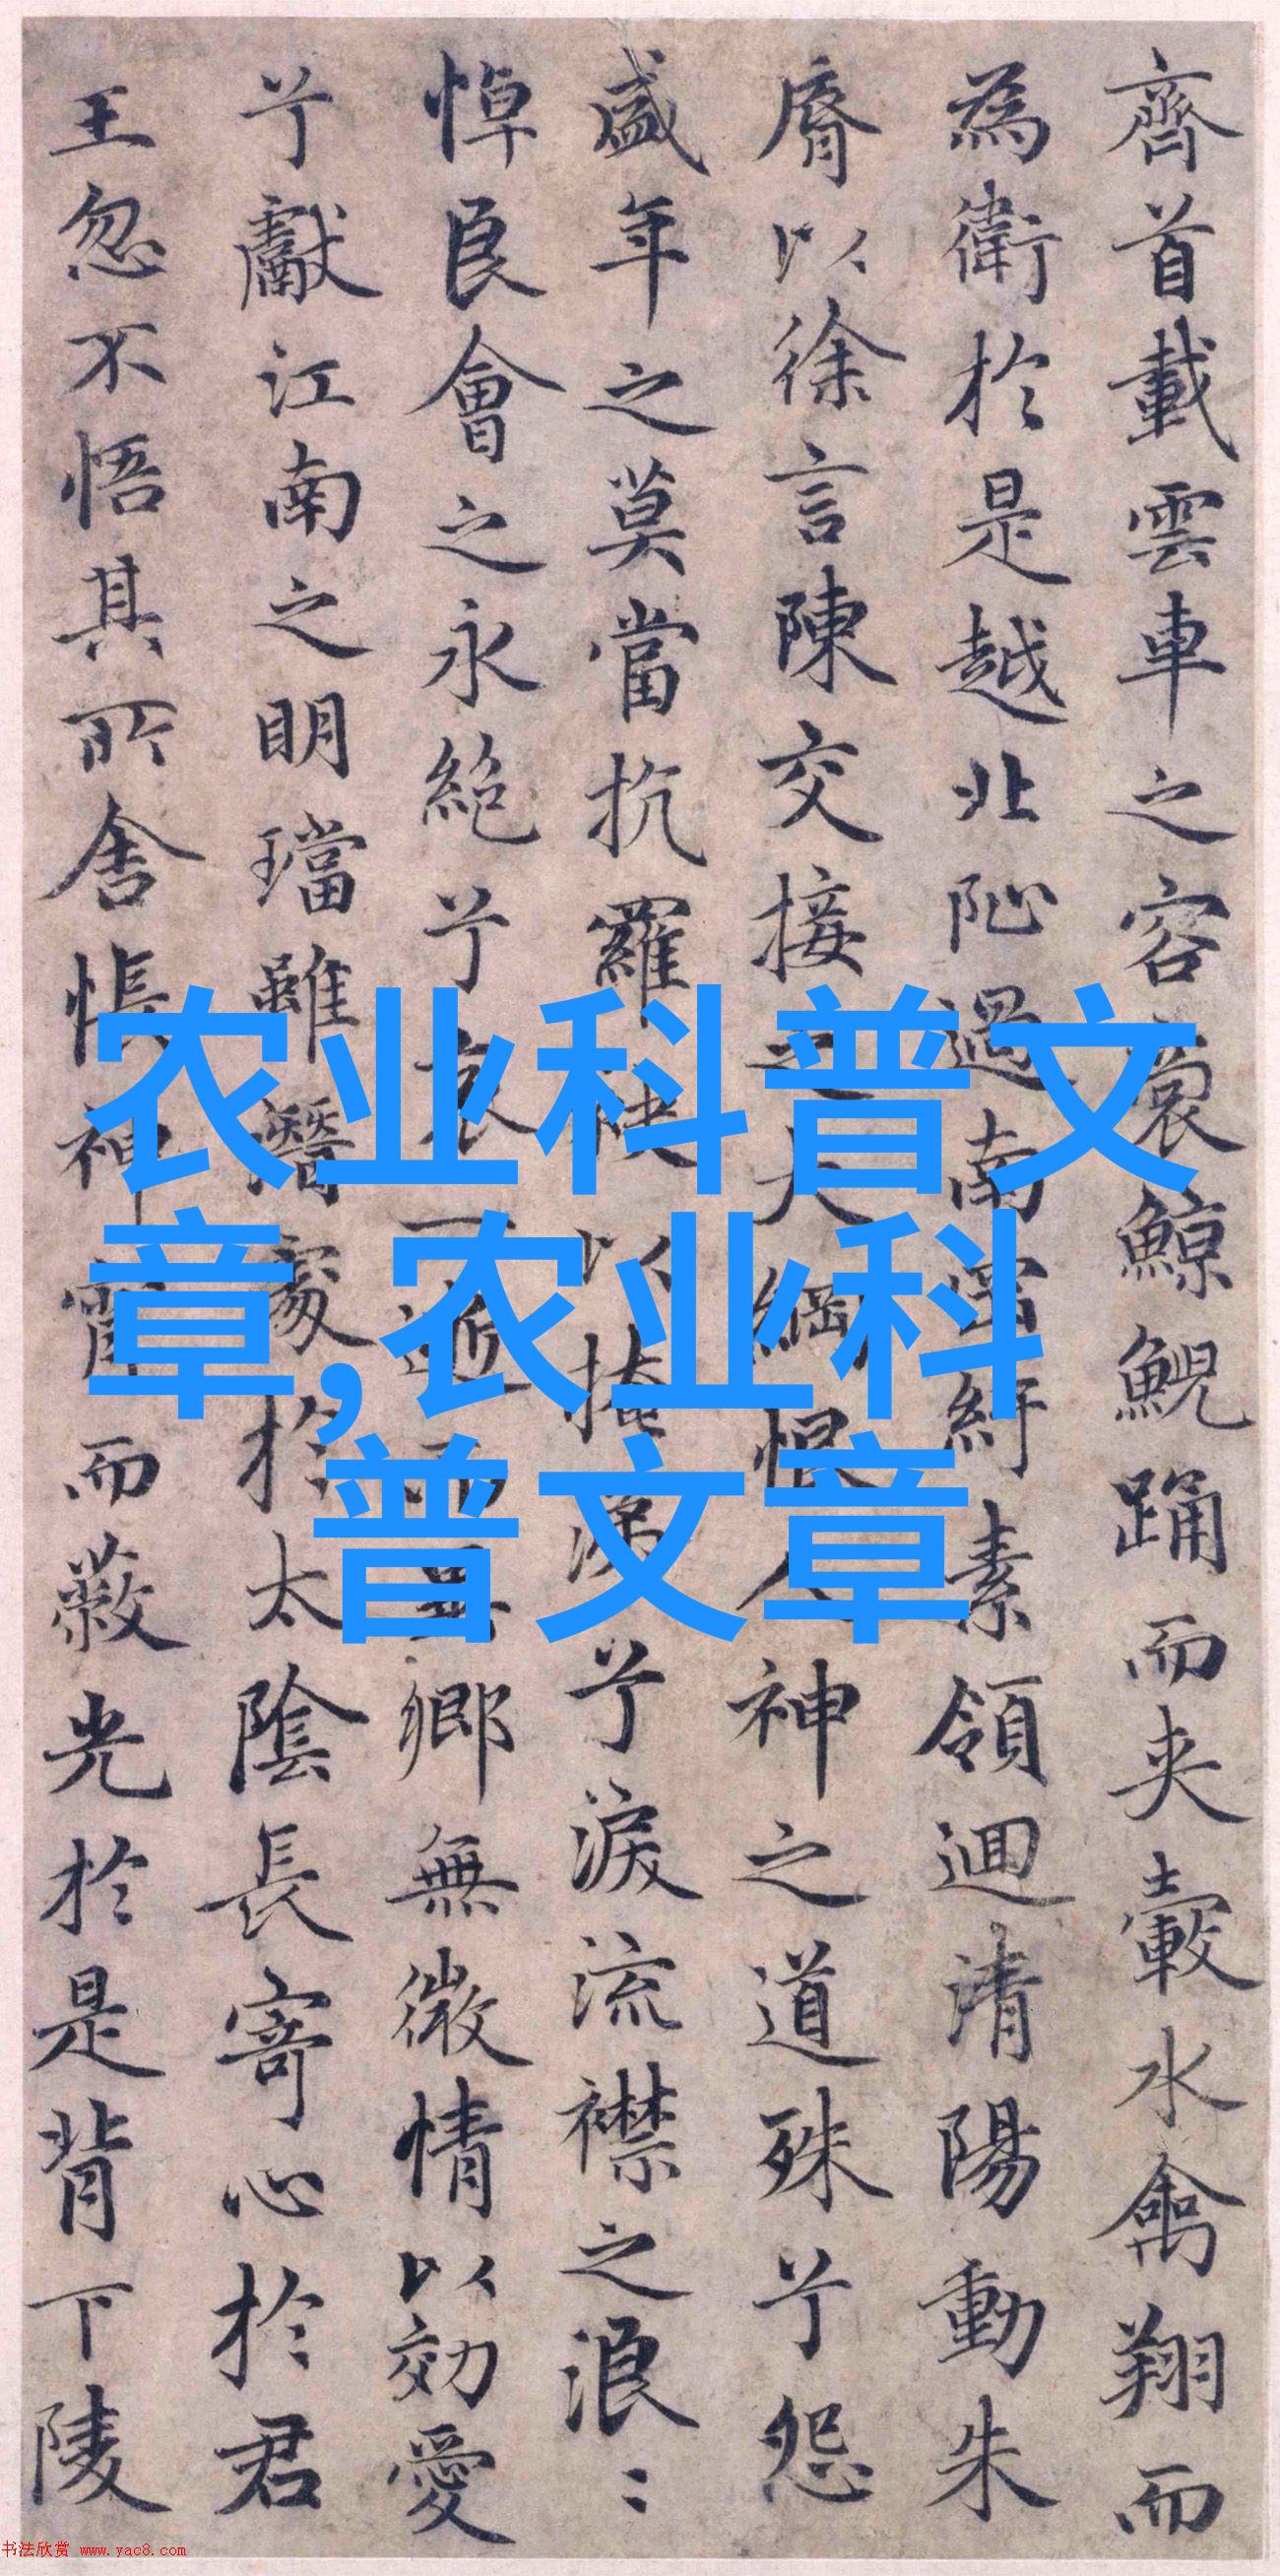 齊首載雲車之容裔鯨鯢踊而夾轂水禽翔而
為衛於是越北沚過南岡紆素領迴清陽動朱
脣以徐言陳交接之大綱恨人神之道殊兮怨
盛年之莫當抗羅袂以掩涕兮淚流襟之浪〻
悼良會之永絕兮哀一逝而異鄉無微情以効愛
兮獻江南之明璫雖潛處於太陰長寄心於君
王忽不悟其所舍悵神霄而蔽光於是背下陵
农业科普文
章,农业科
普文章
书法欣赏 www.yac8.com